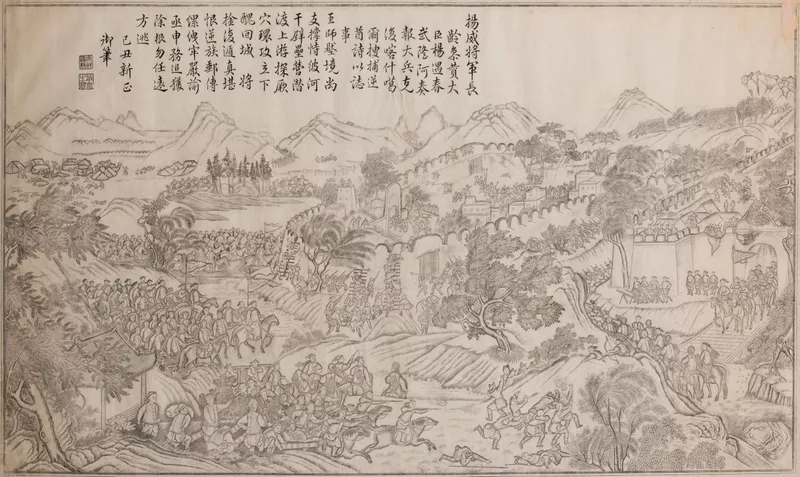 揚威將軍長
齡參贊大
臣楊遇春
武隆阿奏
報大兵克
復喀什噶
爾搜捕逆
酋詩以誌
事
王師壓境尚
支撐恃彼河
干辟壘營潛
渡上游探厥
穴環攻立下
醜回城 將
擒復遁真堪
恨逆族郵傳
縲牢嚴諭
亟申務追獲
除根勿任遠
方逃
己丑新正
御筆